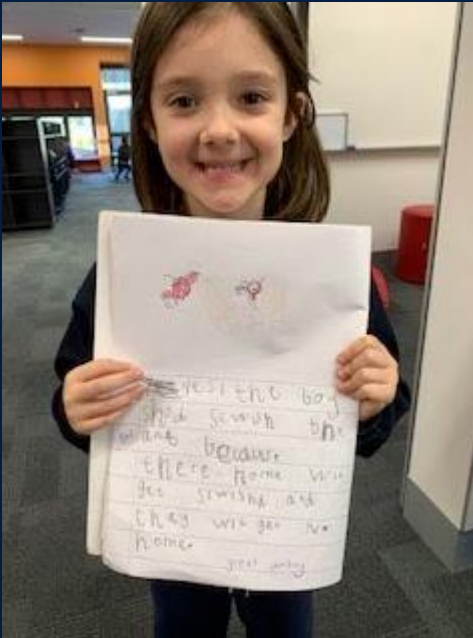 yes the boy
shod scwish the
ant becaus.
there home wil
get scwishd and
they wil get no
home.
great writing